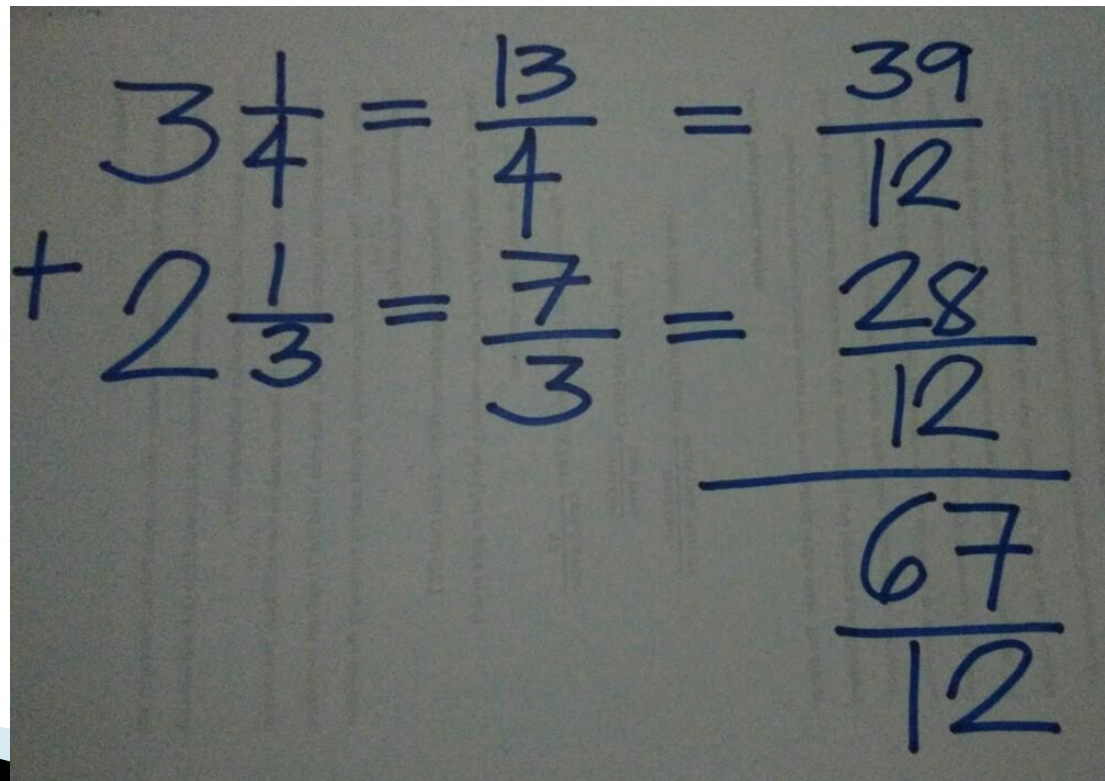 3 1/4 = 13/4 = 39/12
+ 2 1/3 = 7/3 = 28/12
67/12